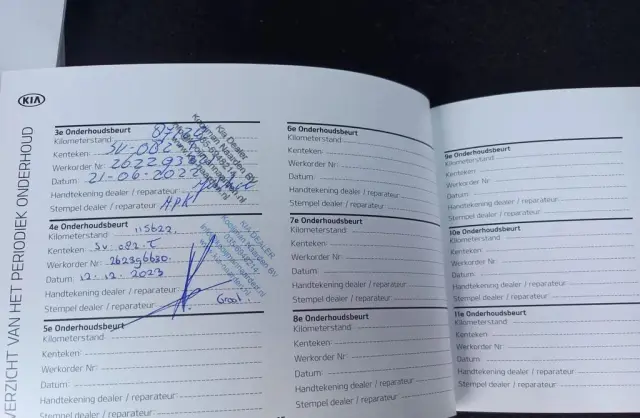 KIA
OVERZICHT VAN HET PERIODIEK ONDERHOUD
3e Onderhoudsbeurt
Kilometerstand
Kenteken:
Werkorder Nr:
Datum: 21-06-2022
Handtekening dealer / reparateur:
Stempel dealer / reparateur: APK
Kia Dealer
Kooijman Naarden BV
4e Onderhoudsbeurt
Kilometerstand 115622
Kenteken:
Werkorder Nr: 262396630
Datum: 12.12.2023
Handtekening dealer / reparateur:
Stempel dealer / reparateur:
Groot
KIA DEALER
Kooijman Naarden BV
5e Onderhoudsbeurt
Kilometerstand:
Kenteken:
Werkorder Nr:
Datum:
Handtekening dealer / reparateur:
Stempel dealer / reparateur:
6e Onderhoudsbeurt
Kilometerstand:
Kenteken:
Werkorder Nr:
Datum:
Handtekening dealer / reparateur:
Stempel dealer / reparateur:
7e Onderhoudsbeurt
Kilometerstand:
Kenteken:
Werkorder Nr:
Datum:
Handtekening dealer / reparateur:
Stempel dealer / reparateur:
8e Onderhoudsbeurt
Kilometerstand:
Kenteken:
Werkorder Nr:
Datum:
Handtekening dealer / reparateur:
Stempel dealer / reparateur:
9e Onderhoudsbeurt
Kilometerstand:
Kenteken:
Werkorder Nr:
Datum:
Handtekening dealer / reparateur:
Stempel dealer / reparateur:
10e Onderhoudsbeurt
Kilometerstand:
Kenteken:
Werkorder Nr:
Datum:
Handtekening dealer / reparateur:
Stempel dealer / reparateur:
11e Onderhoudsbeurt
Kilometerstand:
Kenteken:
Werkorder Nr:
Datum:
Handtekening dealer / reparateur:
Stempel dealer / reparateur: